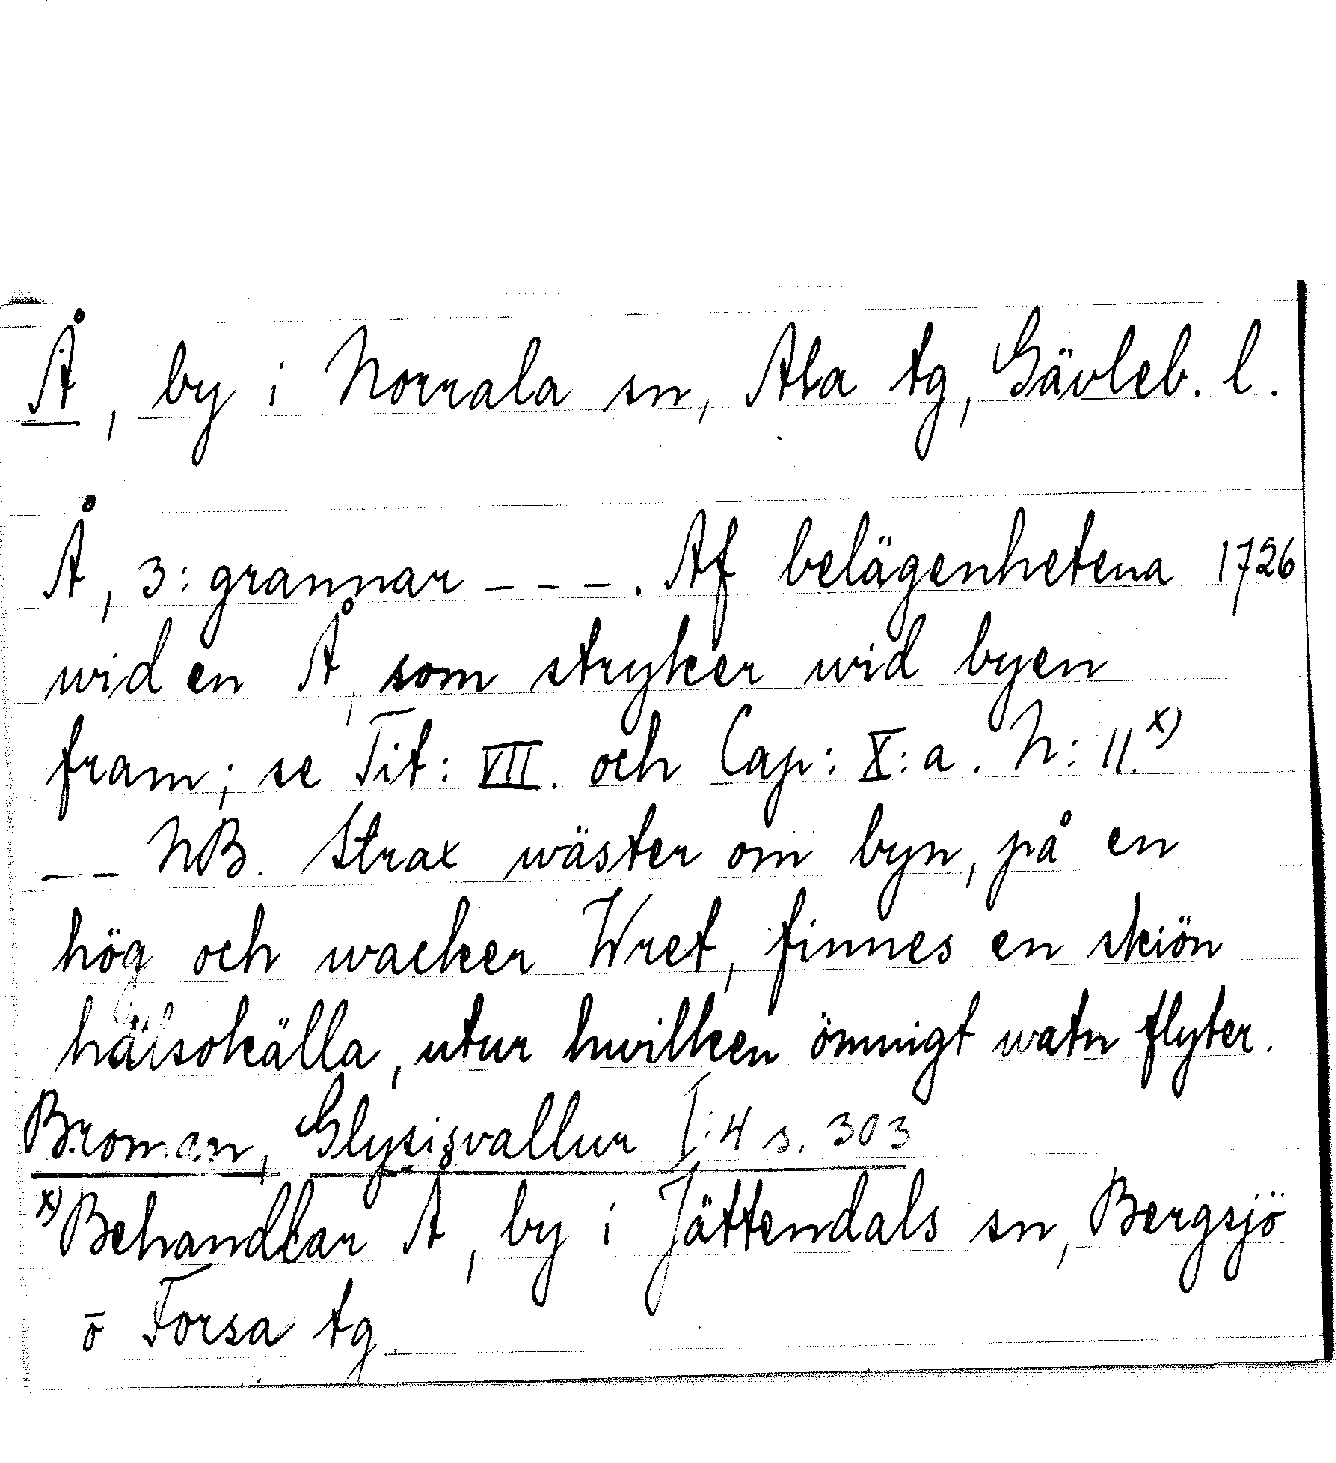 Å, by i Norrala sn, Ala tg, Gävleb. l.
Å, 3: grannar – – –. Af belägenhetena 1726
wid en Å, som stryker wid byen
fram; se Tit: VII. och Cap: X: a. N: 11.x)
– – NB. Strax wäster om byn, på en
hög och wacker Wret, finnes en skiön
hälsokälla, utur hwilken ömnigt watn flyter.
Broman, Glysisvallur I:4 s. 303
x) Behandlar Å, by i Jättendals sn, Bergsjö
o Forsa tg.